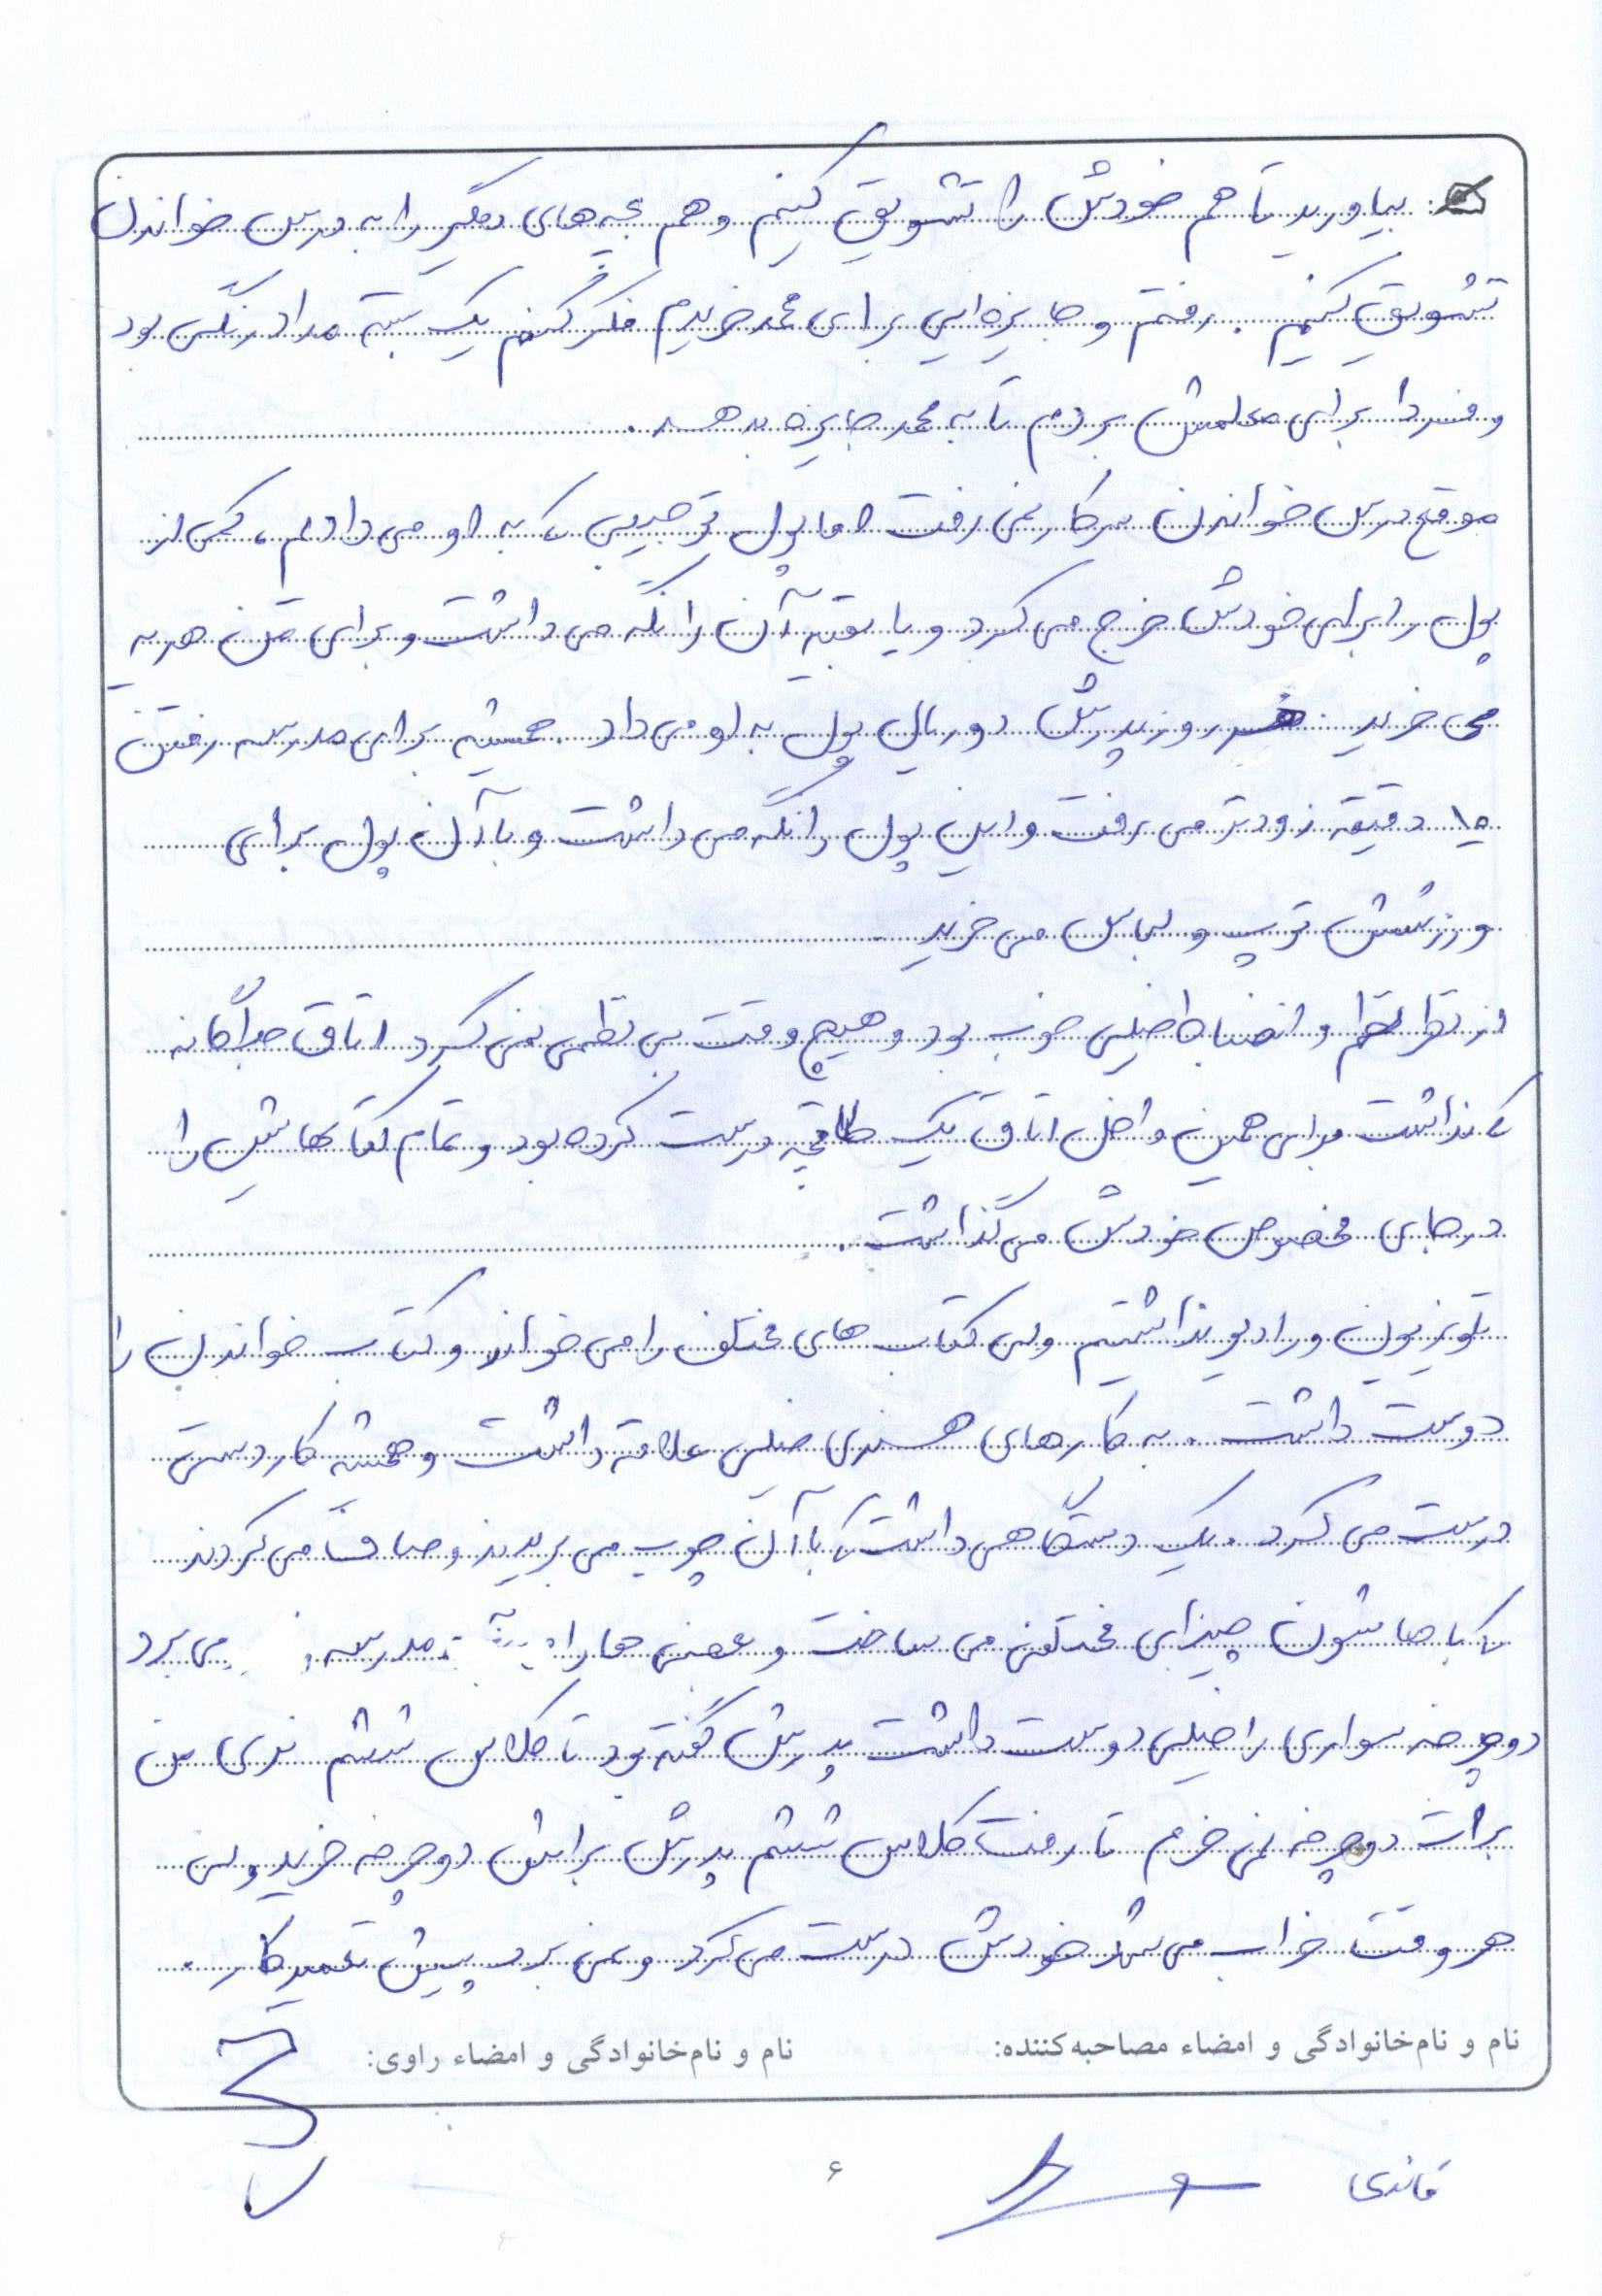 بیاورید تا هم خودش را تشویق کنیم و هم بچه‌های دیگر را به درس خواندن
تشویق کنیم . رفتم و جایزه‌ایی برای محمد خریدم فکر کنم یک بسته مداد رنگی بود
و فردا برای معلمش بردم تا به محمد جایزه بدهند .
موقع درس خواندن سر کار نمی رفت اما پول تو جیبی که به او می دادم ، کمی از
پول را برای خودش خرج می کرد و یا بقیه آن را نگه می داشت و برای من هدیه
می خرید . هر روز پدرش دو ریال پول به او می داد . همیشه برای مدرسه رفتن
۱۵ دقیقه زودتر می رفت و این پول را نگه می داشت و با آن پول برای
ورزشش توپ و لباس می خرید .
از نظر نظم و انضباط خیلی خوب بود و هیچ وقت بی نظمی نمی کرد اتاق جداگانه
که نداشت برای همین داخل اتاق یک طاقچه درست کرده بود و تمام کتابهایش را
در جای مخصوص خودش می گذاشت .
تلوزیون و رادیو نداشتیم ولی کتاب های مختلف را می خواند و کتاب خواندن را
دوست داشت . به کارهای هنری خیلی علاقه داشت و همیشه کار دستی
درست می کرد . یک دستگاهی داشت که با آن چوب می بریدند و صاف می کردند
که باهاشون چیزای مختلفی می ساخت و بعضی ها را مدرسه می برد
دوچرخه سواری را خیلی دوست داشت پدرش گفته بود تا کلاس ششم نری من
برات دوچرخه نمی خرم تا رفت کلاس ششم پدرش برایش دوچرخه خرید ولی
هر وقت خراب می شد خودش درست می کرد و نمی برد پیش تعمیرکار .
نام و نام‌خانوادگی و امضاء مصاحبه‌کننده: نام و نام‌خانوادگی و امضاء راوی:
۶